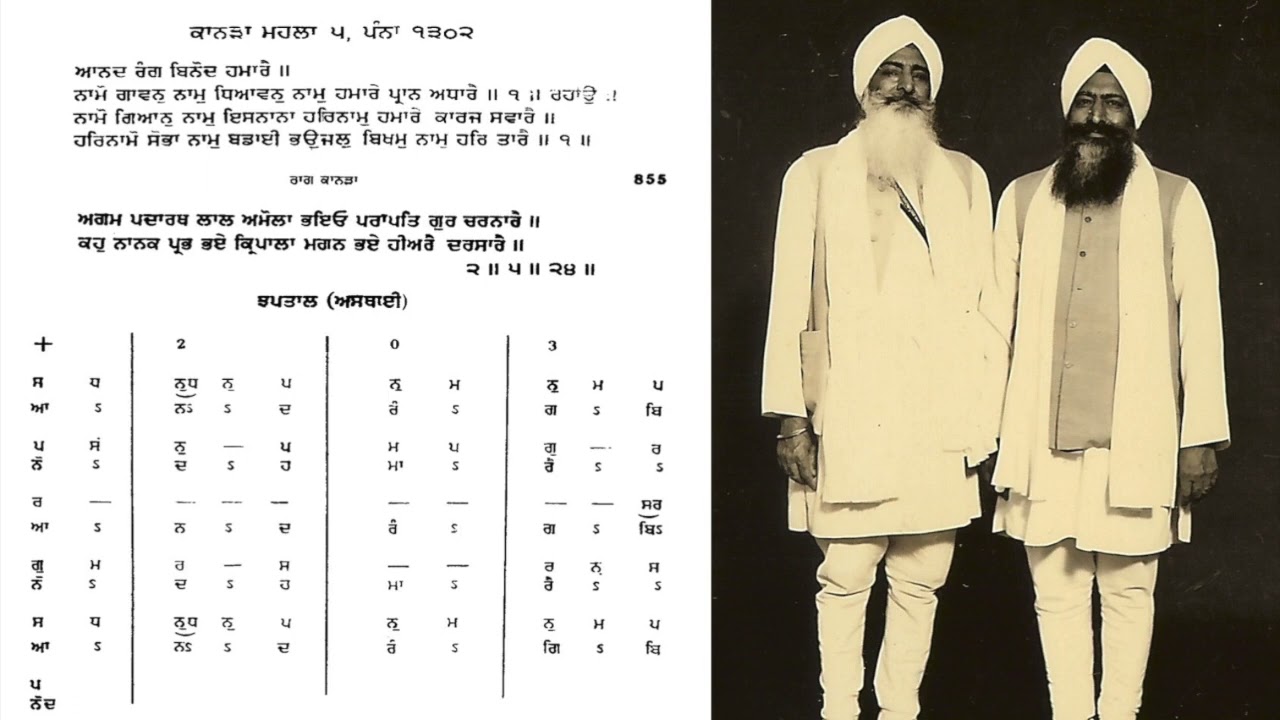 ਕਾਨੜਾ ਮਹਲਾ ੫, ਪੰਨਾ ੧੩੦੨
ਆਨਦ ਰੰਗ ਬਿਨੋਦ ਹਮਾਰੈ ॥
ਨਾਮੋ ਗਾਵਨੁ ਨਾਮੁ ਧਿਆਵਨੁ ਨਾਮੁ ਹਮਾਰੇ ਪ੍ਰਾਨ ਅਧਾਰੈ ॥ ੧ ॥ ਰਹਾਉ ॥
ਨਾਮੋ ਗਿਆਨੁ ਨਾਮੁ ਇਸਨਾਨਾ ਹਰਿਨਾਮੁ ਹਮਾਰੇ ਕਾਰਜ ਸਵਾਰੈ ॥
ਹਰਿਨਾਮੋ ਸੋਭਾ ਨਾਮੁ ਬਡਾਈ ਭਉਜਲੁ ਬਿਖਮੁ ਨਾਮੁ ਹਰਿ ਤਾਰੈ ॥ ੧ ॥
ਰਾਗ ਕਾਨੜਾ 855
ਅਗਮ ਪਦਾਰਥ ਲਾਲ ਅਮੋਲਾ ਭਇਓ ਪਰਾਪਤਿ ਗੁਰ ਚਰਨਾਰੈ ॥
ਕਹੁ ਨਾਨਕ ਪ੍ਰਭ ਭਏ ਕ੍ਰਿਪਾਲਾ ਮਗਨ ਭਏ ਹੀਅਰੈ ਦਰਸਾਰੈ ॥
੨ ॥ ੫ ॥ ੨੪ ॥
ਝਪਤਾਲ (ਅਸਥਾਈ)
+ 2 0 3
ਸ ਧ ਨੁਧ ਨੁ ਪ ਨੁ ਮ ਨੁ ਮ ਪ
ਆ ਽ ਨ਽ ਽ ਦ ਰੰ ਽ ਗ ਽ ਬਿ
ਪ ਸੰ ਨੁ — ਪ ਮ ਪ ਗੁ — ਰ
ਨੋ ਽ ਦ ਽ ਹ ਮਾ ਽ ਰੈ ਽ ਽
ਰ — — — — — — — — ਸਰ
ਆ ਽ ਨ ਽ ਦ ਰੰ ਽ ਗ ਽ ਬਿ਽
ਗੁ ਮ ਰ — ਸ — — ਰ ਨੁ ਸ
ਨੋ ਽ ਦ ਽ ਹ ਮਾ ਽ ਰੈ ਽ ਽
ਸ ਧ ਨੁਧ ਨੁ ਪ ਨੁ ਮ ਨੁ ਮ ਪ
ਆ ਽ ਨ਽ ਽ ਦ ਰੰ ਽ ਗਿ ਽ ਬਿ
ਪ
ਨੋਦ